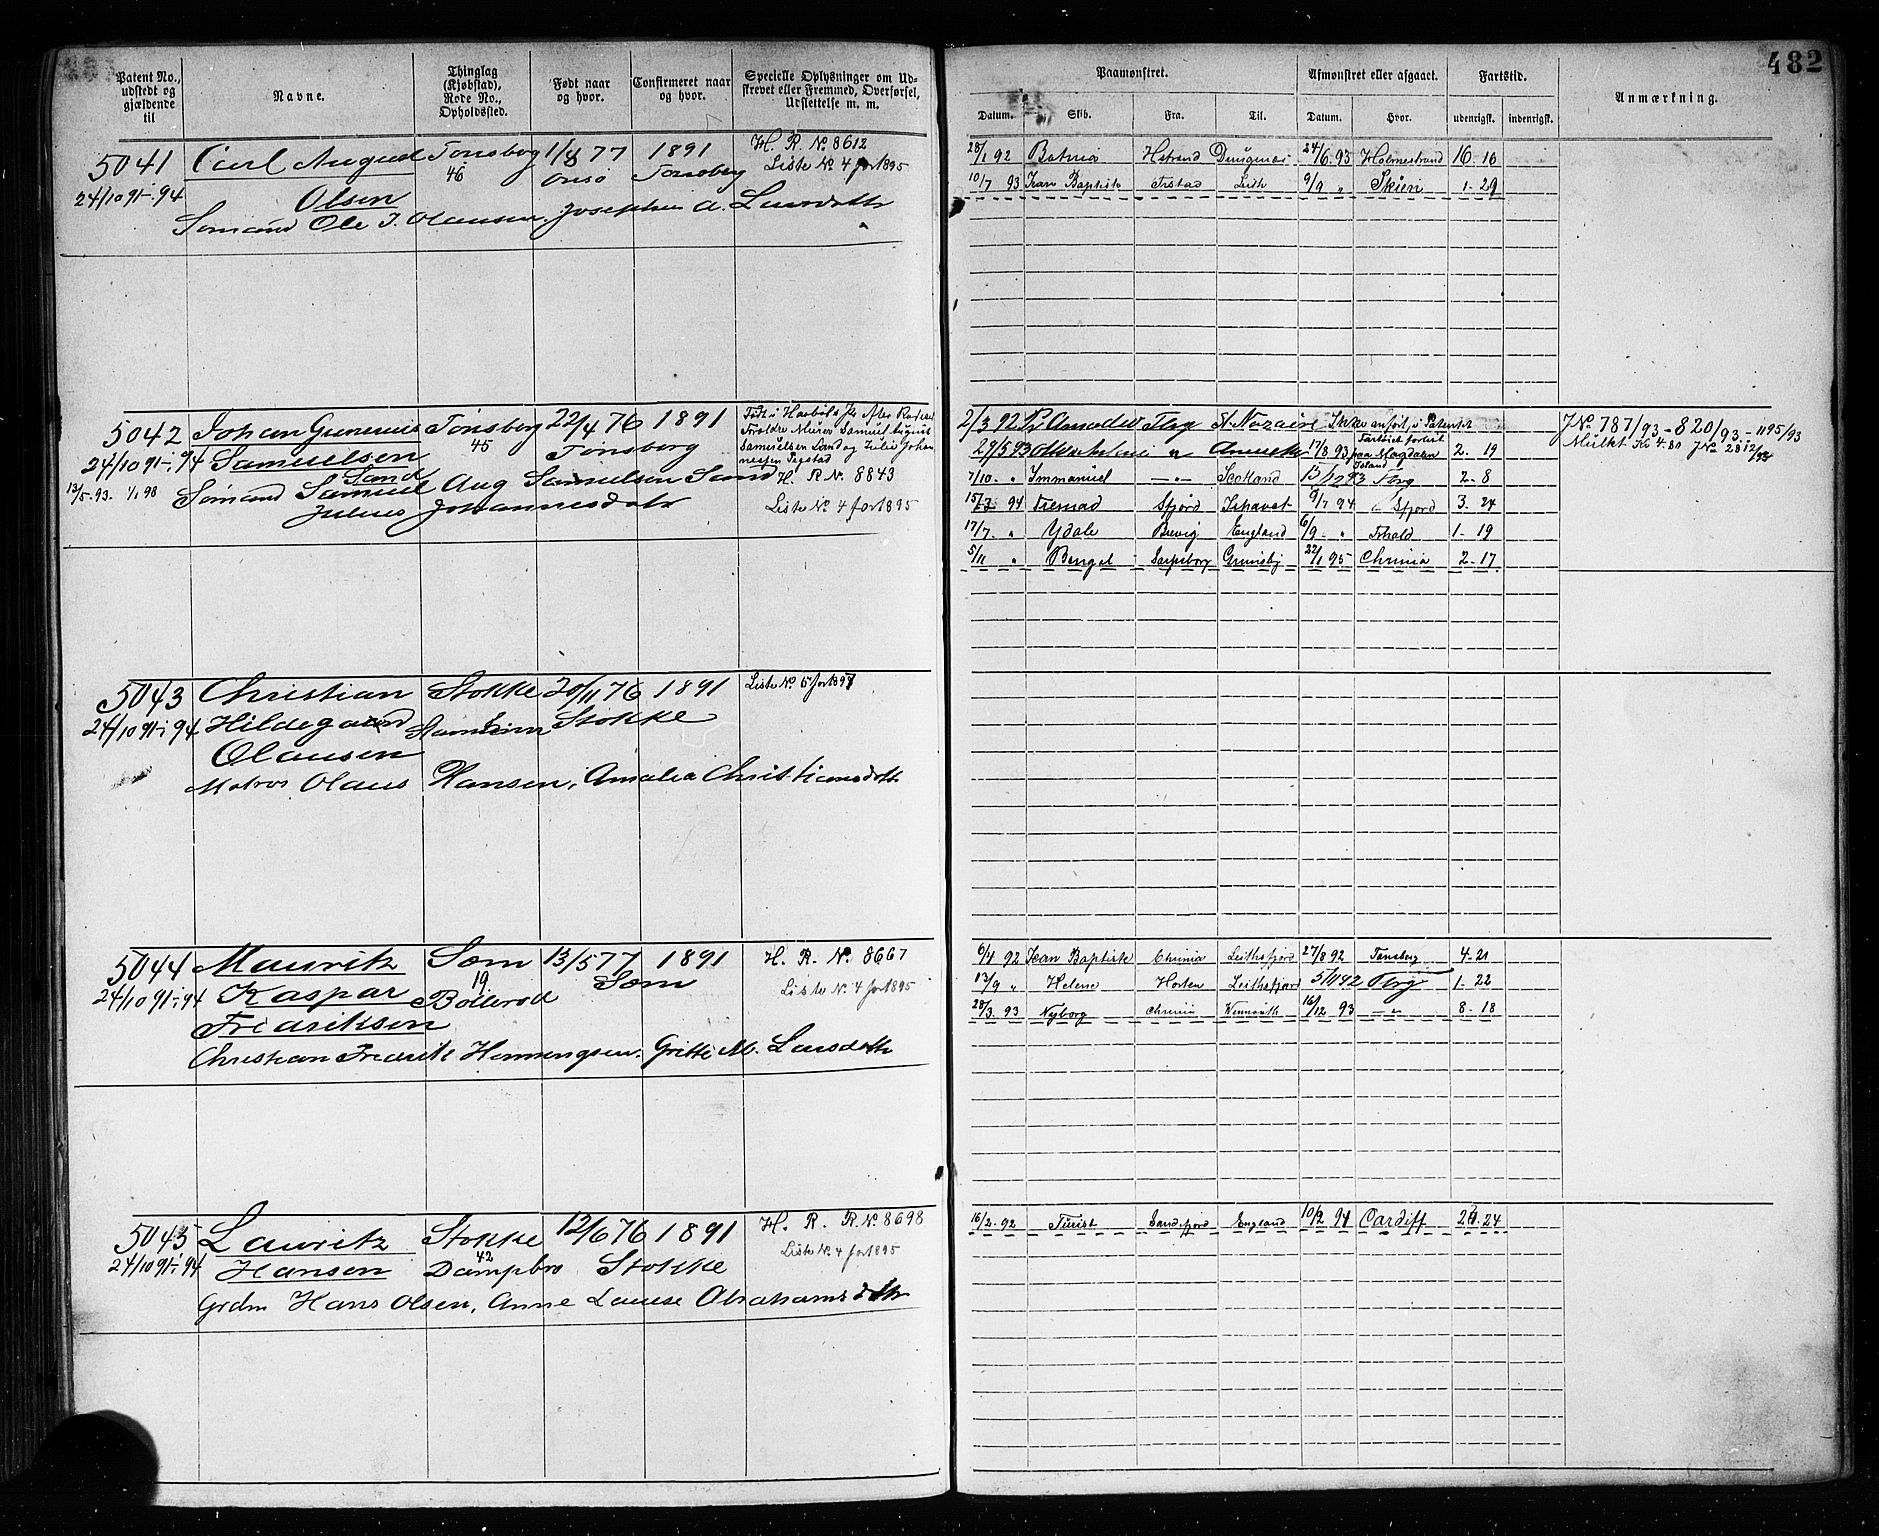 482
Patent No., udstedt og gjældende til
Navne.
Thinglag (Kjøbstad), Rode No., Opholdssted.
Født naar og hvor.
Confirmeret naar og hvor.
Specielle Oplysninger om Udskrevet eller Fremmed, Overførsel, Udslettelse m. m.
Paamønstret.
Afmønstret eller afgaaet.
Fartstid.
Anmærkning.
Datum. Skib. Fra. Til. Datum. Hvor. udenrigsk. indenrigsk.
5041 Carl August Tønsberg 1/8 77 1891 H. R. No 8612
46 Onsø Tønsberg Liste No 4 for 1895
24/10 91-i-94 Olsen
Sømand Ole J. Olaussen. Josephine A. Larsdattr
28/1 92 Hstrand 24/6 93 Holmestrand 16. 16
10/7 93 Jean Baptiste Frstad Leith 9/9 " Skien 1. 29
5042 Johan Gunerius Tønsberg 22/4 76 1891
24/10 91-i-94 Samuelsen 45 Tønsberg
Sand
13/5-93. 1/1 98 Sømand Samuel Aug Samuelsen Sand H. R No. 8843
Johannesdatr Liste No 4 for 1895
2/3 92 Amadeo Tbg St Nazaire Ikke anført i Patentet
27/5 93 " 17/8 93 paa Magdalen Island 2. 19
7/10 " Immanuel —"— Scotland 13/12 93 Tbg 2-8
94 Sfjord Ishavet 9/7 94 " Sfjord 3. 24
17/7 " Ydale Brevig England 6/9 " Frhald 1. 19
5/11 " Bengal Sarpsborg Grimsby 22/1 95 Chrania 2-17
JNo 787/93 - 820/93 - 1195/93
Mulkt Kr 4.80 JNo 23 12/94
5043 Christian Stokke 20/11 76 1891 Liste No 5 for 1897
24/10 91-i-94 Hildegard Stokke
Olausen
Matros Olaus Hansen, Amalia Christiansdattr
5044 Mauritz Sem 13/5 77 1891 H. R. No. 8667
24/10 91-i-94 Kaspar 19 Bollerød Sem Liste No. 4 for 1895
Fredriksen
Christian Fredrik Henningsen. Gritte M. Larsdattr
6/4 92 Jean Baptiste Chrania Leithsfjord 27/8 92 Tønsberg 4-21
13/9 " Helene Horten Leithsfjord 5/11 92 Tbg 1-22
28/3. 93 Nyborg Chrania 16/12 93 —"— 8-18
5045 Lauritz Stokke 12/6 76 1891 H. R. R. No 8698
24/10 91-i-94 Hansen 42 Dampbro Stokke Liste No. 4 for 1895
Grdm Hans Olsen, Anne Louise Abrahamsdattr
16/2. 92 Turist Sandefjord England 10/2 94 Cardiff 24